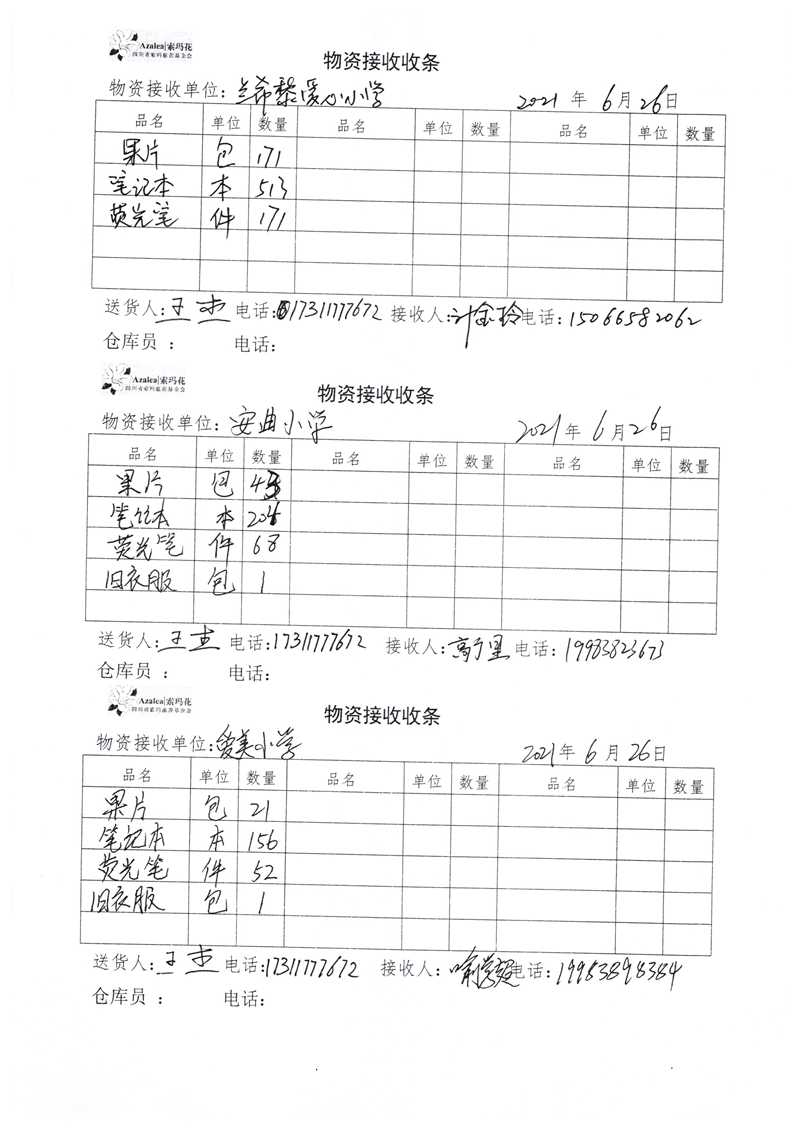 Azalea|索玛花
四川省索玛慈善基金会
物资接收收条
物资接收单位：兰希黎爱心小学 2021 年 6 月 26 日
品名 单位 数量 品名 单位 数量 品名 单位 数量
果片 包 171
笔记本 本 513
荧光笔 件 171
送货人：王杰 电话：17311777672 接收人：叶金玲 电话：15066582062
仓库员 ： 电话：
Azalea|索玛花
四川省索玛慈善基金会
物资接收收条
物资接收单位：安曲小学 2021 年 6 月 26 日
品名 单位 数量 品名 单位 数量 品名 单位 数量
果片 包
笔记本 本 204
荧光笔 件 68
旧衣服 包 1
送货人：王杰 电话：17311777672 接收人： 电话：19983823673
仓库员 ： 电话：
Azalea|索玛花
四川省索玛慈善基金会
物资接收收条
物资接收单位：爱美小学 2021 年 6 月 26 日
品名 单位 数量 品名 单位 数量 品名 单位 数量
果片 包 21
笔记本 本 156
荧光笔 件 52
旧衣服 包 1
送货人：王杰 电话：17311777672 接收人： 电话：19983898384
仓库员 ： 电话：